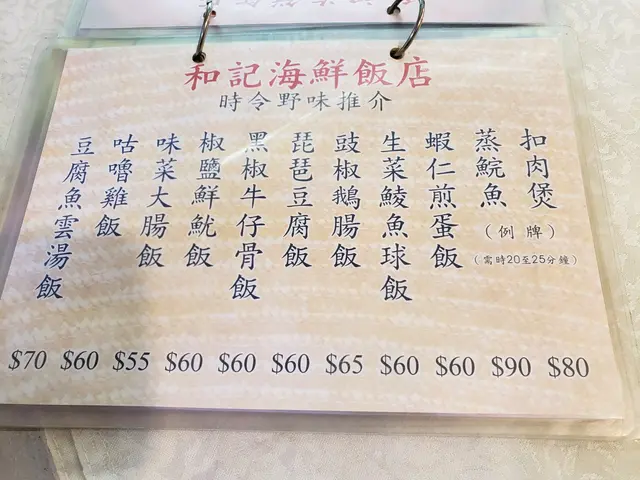 和記海鮮飯店
時令野味推介
扣肉煲
蒸鯇魚
(例牌)
(需時20至25分鐘)
蝦仁煎蛋飯
生菜鯪魚球飯
豉椒鵝腸飯
琵琶豆腐飯
黑椒牛仔骨飯
椒鹽鮮魷飯
味菜大腸飯
咕嚕雞飯
豆腐魚雲湯飯
$70 $60 $55 $60 $60 $60 $65 $60 $60 $90 $80